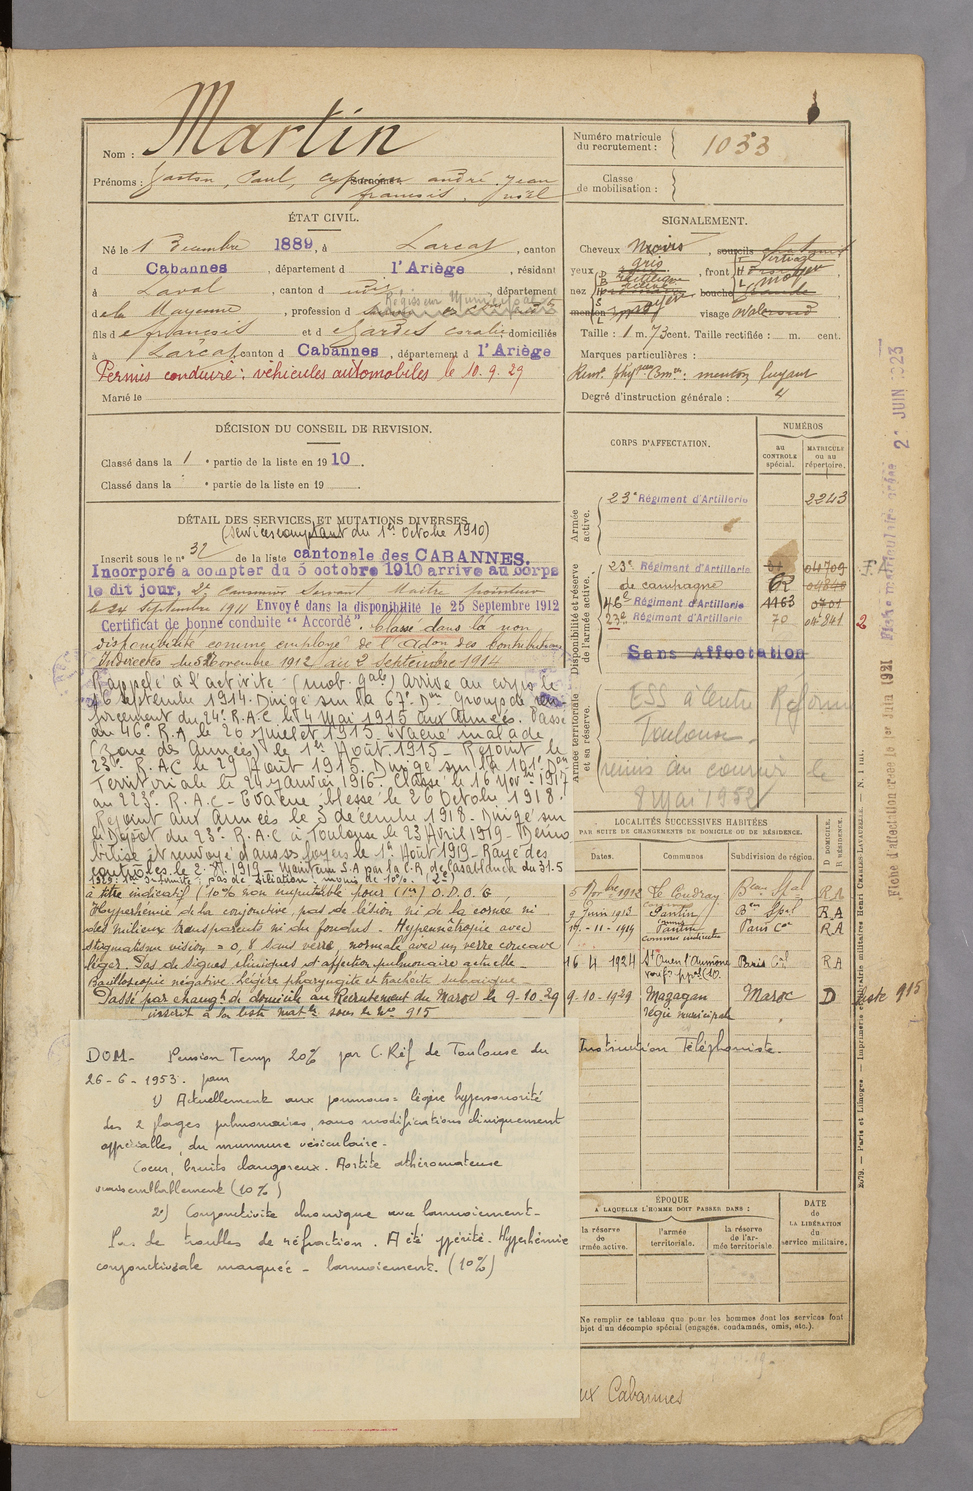 Nom : Martin
Prénoms : Gaston, Paul, Surnoms andré. Jean
francois. noël
Numéro matricule
du recrutement : 1033
Classe
de mobilisation :
ÉTAT CIVIL.
Né le 1 Decembre 1889, à Larcat, canton
d Cabannes, département d l'Ariège, résidant
à Laval, canton d , département
Régisseur Municipal
d e la Mayenne, profession d
fils d e francois et d domiciliés
à Larcat canton d Cabannes, département d l'Ariège
Permis conduire : véhicules automobiles le 10.9.29
Marié le
SIGNALEMENT.
Cheveux Noirs, sourcils
yeux gris, front Vertical
nez rectiligne moyen bouche
menton visage ovale
Taille : 1 m. 73 cent. Taille rectifiée : m. cent.
Marques particulières :
Rens. phys. Com. : menton fuyant
Degré d'instruction générale : 4
DÉCISION DU CONSEIL DE REVISION.
Classé dans la 1e partie de la liste en 1910.
Classé dans la e partie de la liste en 19
DÉTAIL DES SERVICES ET MUTATIONS DIVERSES
(services comptant du 1er Octobre 1910)
Inscrit sous le n° 32 de la liste cantonale des CABANNES.
Incorporé à compter du 5 octobre 1910 arrive au corps
le dit jour, 2e Canonnier Servant Maître pointeur
le 24 septembre 1911 Envoyé dans la disponibilité le 25 Septembre 1912
Certificat de bonne conduite "Accordé". Classé dans la non
disponibilité comme employé de l'Adon des Contributions
Indirectes du 5 Novembre 1912 au 2 Septembre 1914
Rappelé à l'activité (mob. gale) Arrivé au corps le
16 septembre 1914. Dirigé sur la 67e Don Groupe de ren-
forcement du 24e R.A.C. le 4 mai 1915 aux Armées. Passé
au 46e R.A le 20 juillet 1915. Evacué malade
(Zone des Armées) le 1er Août 1915 - Rejoint le
23e R.AC le 29 Août 1915. Dirigé sur la 101e Don
Territoriale le 24 Janvier 1916. Classé le 16 Nov. 1917
au 223e R.A.C - Evacué blessé le 26 Octobre 1918.
Rejoint aux Armées le 3 decembre 1918. Dirigé sur
le Dépôt du 23e R.A.C à Toulouse le 23 Avril 1919 - Démo
bilisé et renvoyé dans ses foyers le 1er Août 1919 - Rayé des
contrôles le Maintenu S.A par la C.R. de Casablanca du 31.5
à titre indicatif (10% non imputable pour (1er) O.D.O.G
Hyperhémie de la conjonctive, pas de lésion ni de la cornée ni
des milieux transparents ni du fondus. Hypermétropie avec
stigmatisme vision = 0,8 sans verre, normale avec un verre concave
léger. Pas de signes cliniques d'affection pulmonaire actuelle.
Bacilloscopie négative. Légère pharyngite et trachéite subaiguë.
Passé par changt de domicile au Recrutement du Maroc le 9-10-29
inscrit à la liste matle sous le No 915
DOM- Pension Temp 20% par C.Réf de Toulouse du
26-6-1953. pour
1) Actuellement aux poumons = légère hypersonorité
des 2 plages pulmonaires, sans modifications cliniquement
appréciables, du murmure vésiculaire.
Coeur, bruits clangoreux. Aortite athéromateuse
vraisemblablement (10%)
2e) Conjonctivite chronique avec larmoiement-
Pas de troubles de réfraction. A été ypérité. Hyperhémie
conjonctivale marquée - larmoiement. (10%)
CORPS D'AFFECTATION.
NUMÉROS
au
CONTROLE
spécial.
MATRICULE
ou au
répertoire.
Armée
active.
23e Régiment d'Artillerie 2243
Disponibilité et réserve
de l'armée active.
23e Régiment d'Artillerie 04709
de campagne 62
46e Régiment d'Artillerie 1163 0701
23e Régiment d'Artillerie 70
Sans Affectation
Armée territoriale
et sa réserve.
ESS à Centre Reforme
Toulouse -
remis au courrier le
8 Mai 1952
LOCALITÉS SUCCESSIVES HABITÉES
PAR SUITE DE CHANGEMENTS DE DOMICILE OU DE RÉSIDENCE.
D DOMICILE.
R RÉSIDENCE.
Dates. Communes Subdivision de région.
5 Nbre 1912 Le Coudray Beau Spal R A
9 Juin 1913 Pantin Bau Spal R A
17-11-1919 Pantin Paris R A
commis indirectes
16 4 1924 St Ouen l'Aumône Paris R A
9-10-1929 Mazagan Maroc D Liste 915
régie municipale
Instruction Téléphoniste.
ÉPOQUE
A LAQUELLE L'HOMME DOIT PASSER DANS :
la réserve
de
armée active.
l'armée
territoriale.
la réserve
de l'ar-
mée territoriale
DATE
de
LA LIBÉRATION
du
service militaire.
Ne remplir ce tableau que pour les hommes dont les services font
objet d'un décompte spécial (engagés, condamnés, omis, etc.).
ux Cabannes
Fiche d'affectation créée le 1er Juin 1921
Fiche matriculaire créée 21 JUIN 1923
2
2679. — Paris et Limoges. — Imprimerie et librairie militaires Henri CHARLES-LAVAUZELLE.